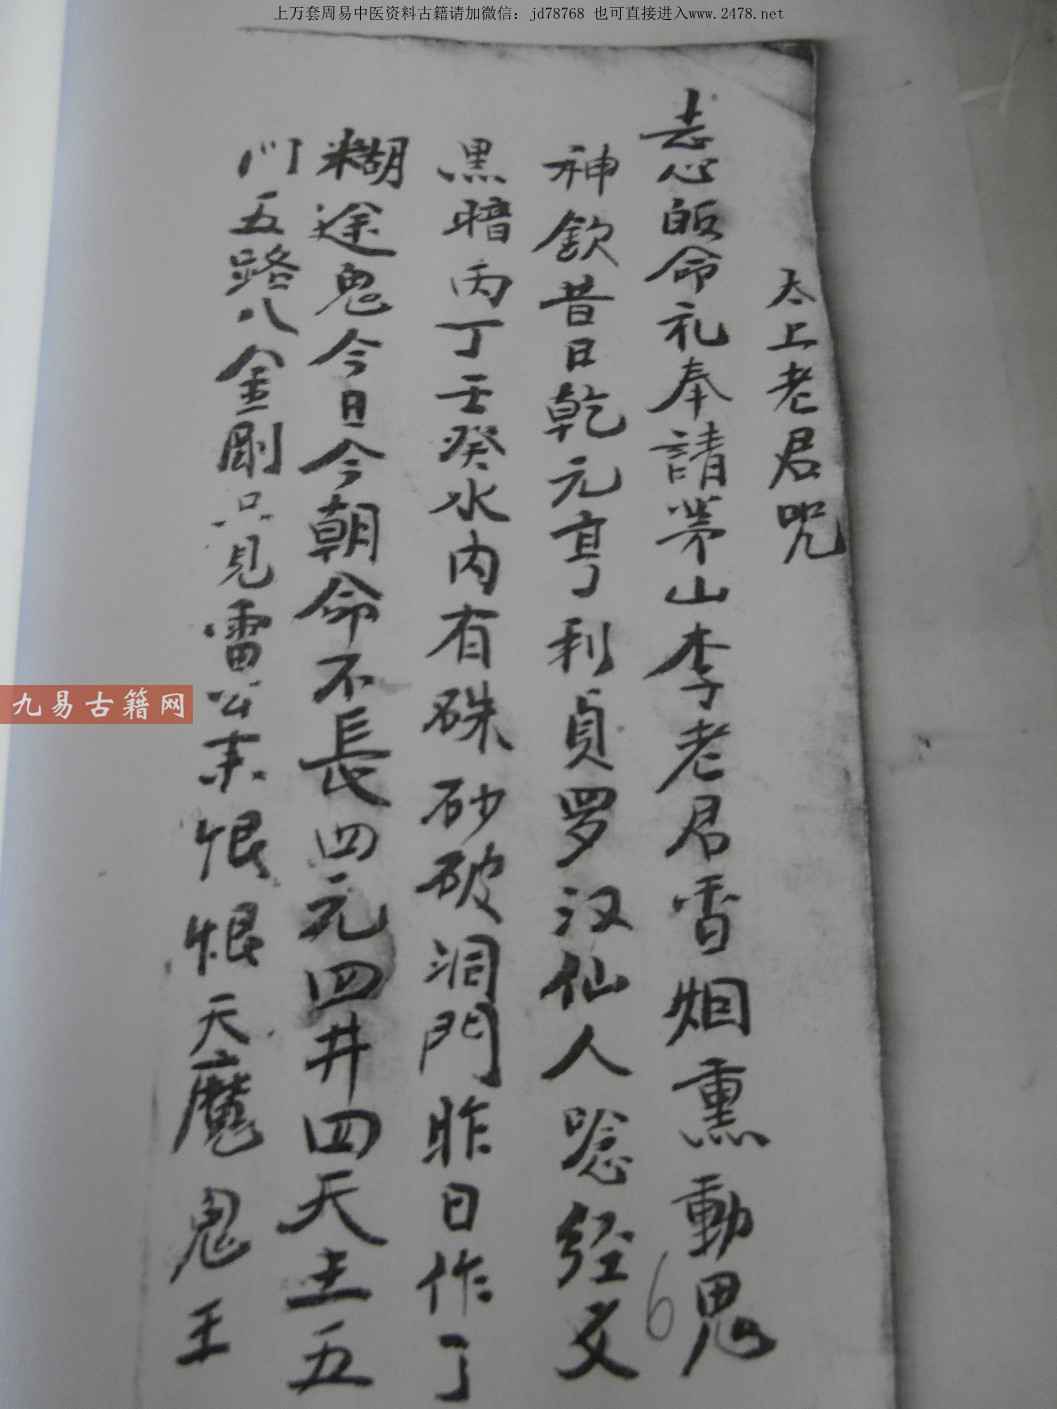 上万套周易中医资料古籍请加微信：jd78768 也可直接进入www.2478.net
太上老君咒
志心皈命礼奉請茅山李老君香烟熏動鬼
神欽昔日乾元亨利貞罗汉仙人唸经文
黑暗丙丁壬癸水内有硃砂破洞門昨日作了
糊途鬼今日今朝命不長四元四井四天主五
门五路八金剛只见雷公来恨恨天魔鬼王
6
九易古籍网